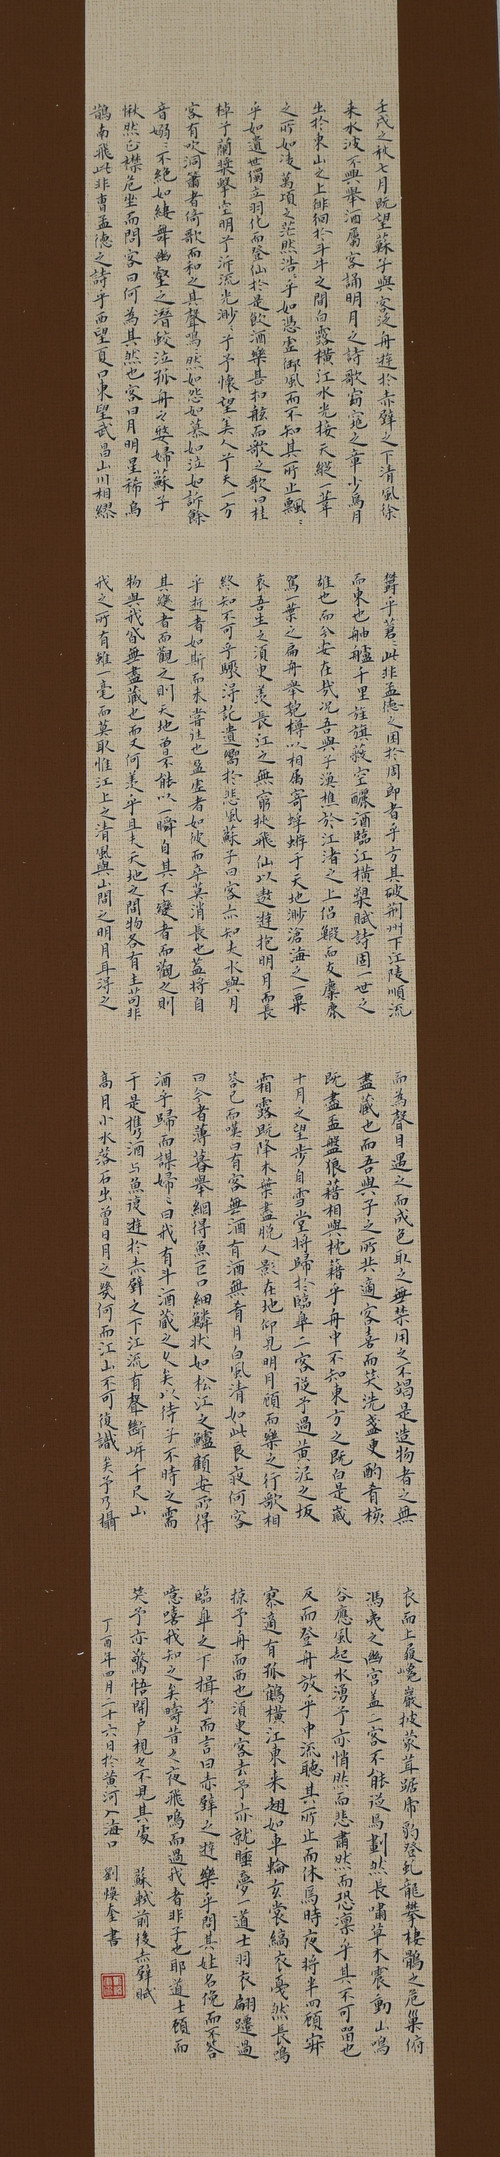 壬戌之秋七月既望蘇子與客泛舟遊於赤壁之下清風徐
来水波不興舉酒屬客誦明月之詩歌窈窕之章少焉月
出於東山之上徘徊於斗牛之間白露橫江水光接天縱一葦
之所如凌萬頃之茫然浩浩乎如憑虛御風而不知其所止飄飄
乎如遺世獨立羽化而登仙於是飲酒樂甚扣舷而歌之歌曰桂
棹兮蘭槳擊空明兮泝流光渺渺兮予懷望美人兮天一方
客有吹洞簫者倚歌而和之其聲嗚嗚然如怨如慕如泣如訴餘
音嫋嫋不絕如縷舞幽壑之潛蛟泣孤舟之嫠婦蘇子
愀然正襟危坐而問客曰何為其然也客曰月明星稀烏
鵲南飛此非曹孟德之詩乎西望夏口東望武昌山川相繆
鬱乎蒼蒼此非孟德之困於周郎者乎方其破荊州下江陵順流
而東也舳艫千里旌旗蔽空釃酒臨江橫槊賦詩固一世之
雄也而今安在哉况吾與子漁樵於江渚之上侶鰕而友麋鹿
駕一葉之扁舟舉匏樽以相屬寄蜉蝣于天地渺滄海之一粟
哀吾生之須臾羨長江之無窮挾飛仙以遨遊抱明月而長
終知不可乎驟得託遺響於悲風蘇子曰客亦知夫水與月
乎逝者如斯而未嘗往也盈虛者如彼而卒莫消長也蓋將自
其變者而觀之則天地曾不能以一瞬自其不變者而觀之則
物與我皆無盡藏也而又何羨乎且夫天地之間物各有主苟非
我之所有雖一毫而莫取惟江上之清風與山間之明月耳得之
而為聲目遇之而成色取之無禁用之不竭是造物者之無
盡藏也而吾與子之所共適客喜而笑洗盞更酌肴核
既盡盃盤狼藉相與枕藉乎舟中不知東方之既白是歲
十月之望步自雪堂將歸於臨皋二客從予過黃泥之坂
霜露既降木葉盡脫人影在地仰見明月顧而樂之行歌相
答已而嘆曰有客無酒有酒無肴月白風清如此良夜何客
曰今者薄暮舉網得魚巨口細鱗狀如松江之鱸顧安所得
酒乎歸而謀婦婦曰我有斗酒藏之久矣以待子不時之需
于是攜酒与魚復遊於赤壁之下江流有聲斷岸千尺山
高月小水落石出曾日月之幾何而江山不可復識矣予乃攝
衣而上履巉巖披蒙茸踞虎豹登虬龍攀棲鶻之危巢俯
馮夷之幽宮蓋二客不能從焉劃然長嘯草木震動山鳴
谷應風起水湧予亦悄然而悲肅然而恐凜乎其不可留也
反而登舟放乎中流聽其所止而休焉時夜將半四顧寂
寥適有孤鶴橫江東来翅如車輪玄裳縞衣戛然長鳴
掠予舟而西也須臾客去予亦就睡夢一道士羽衣翩躚過
臨皋之下揖予而言曰赤壁之遊樂乎問其姓名俛而不答
噫嘻我知之矣疇昔之夜飛鳴而過我者非子也耶道士顧而
笑予亦驚悟開户視之不見其處 蘇軾前後赤壁賦
丁酉年四月二十六日於黄河入海口 劉煥奎書